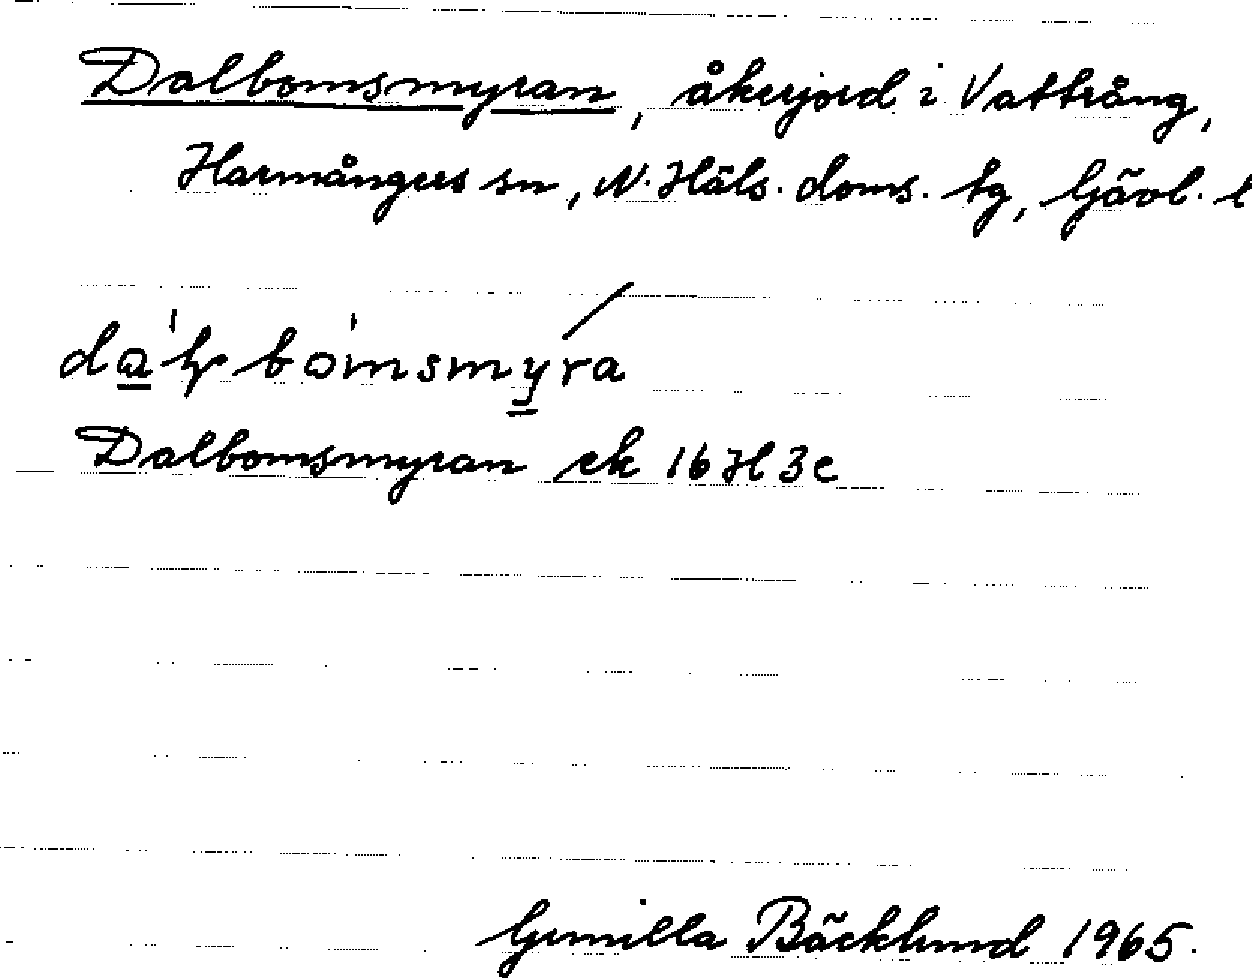 Dalbomsmyran, åkerjord i Vattrång,
Harmångers sn, N. Häls. doms. tg, Gävl. l
Dalbomsmyran ek 16 H 3c
Gunilla Bäcklund 1965.